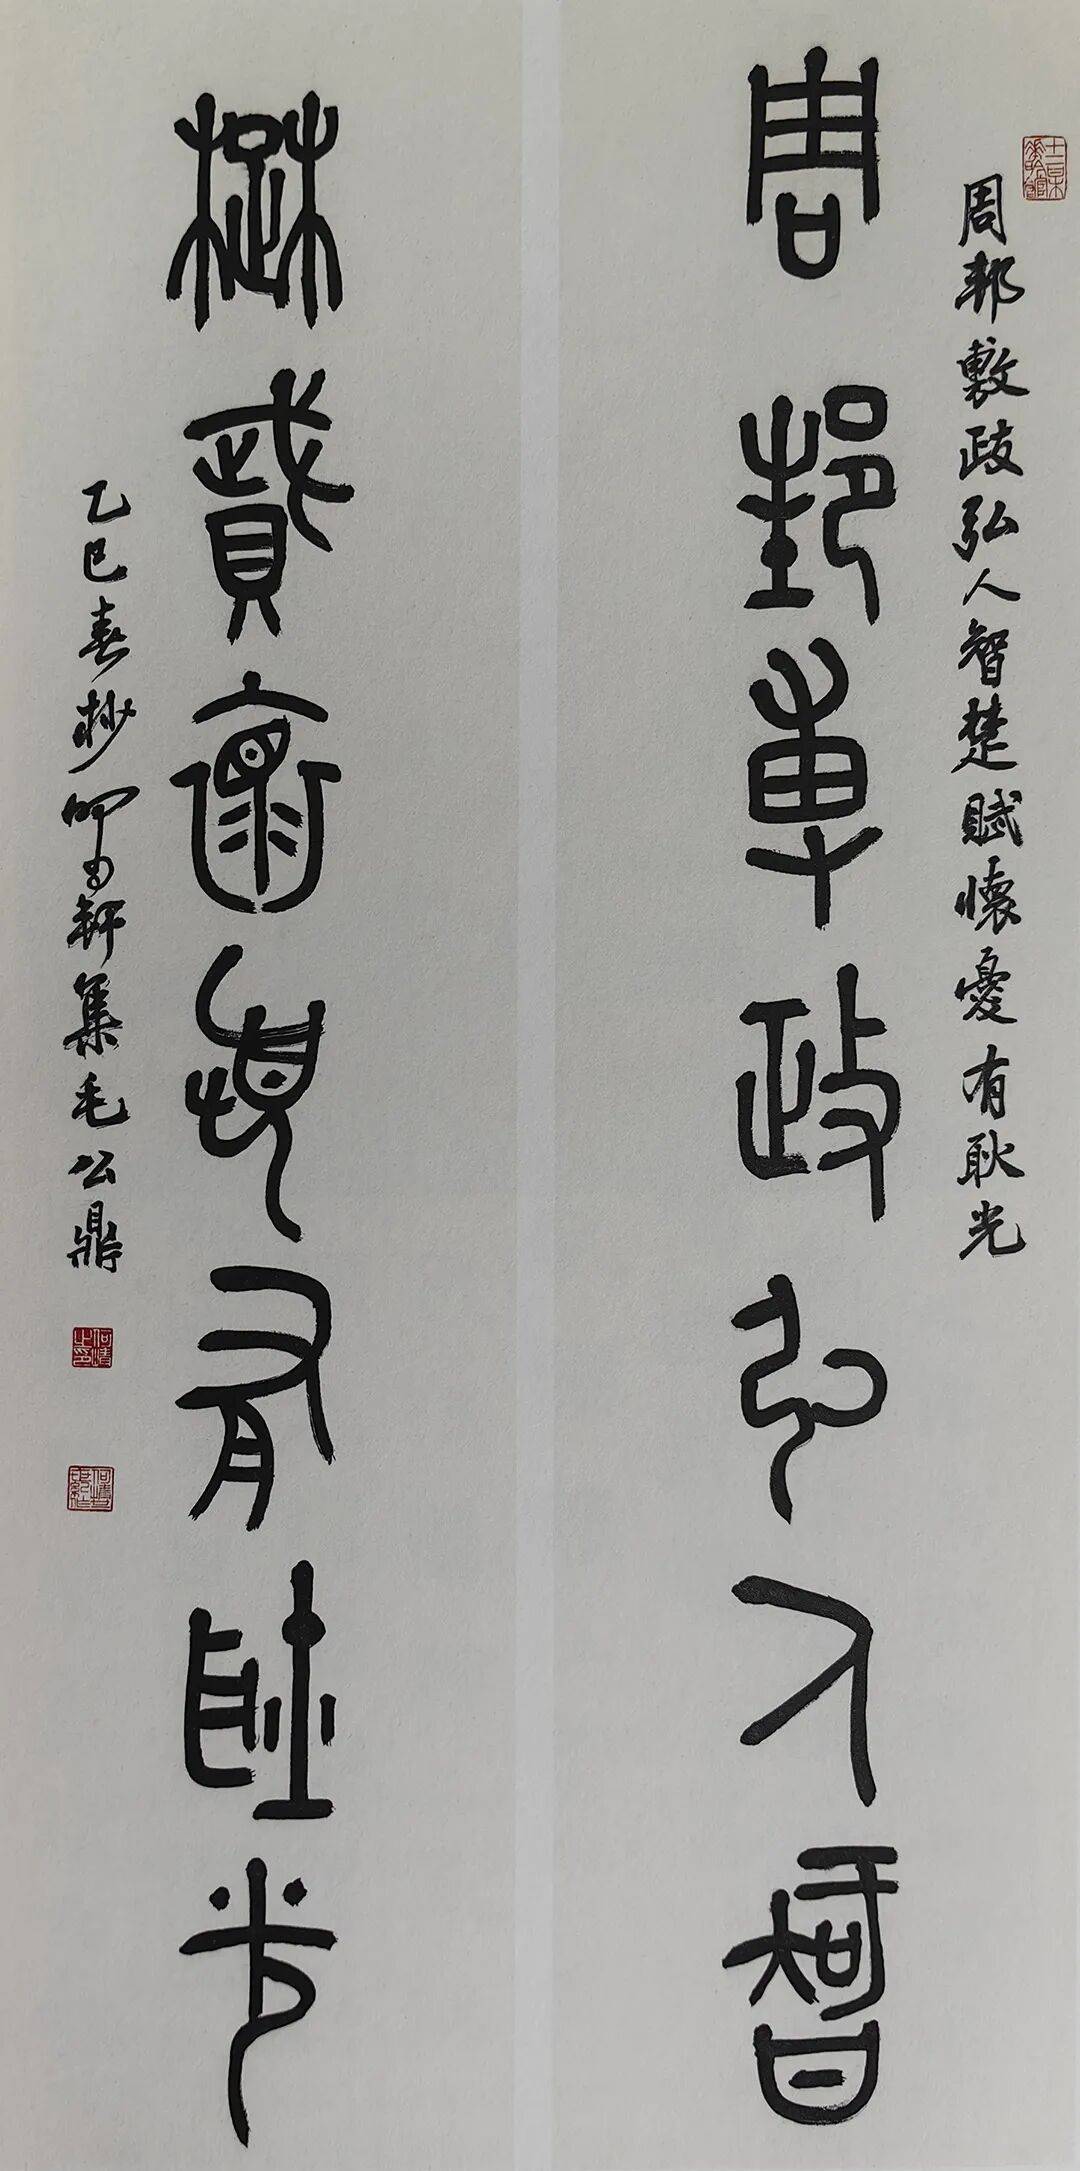 周邦敷政弘人智
楚賦懷憂有耿光
周邦敷政弘人智楚賦懷憂有耿光
乙巳春抄叩又軒集毛公鼎